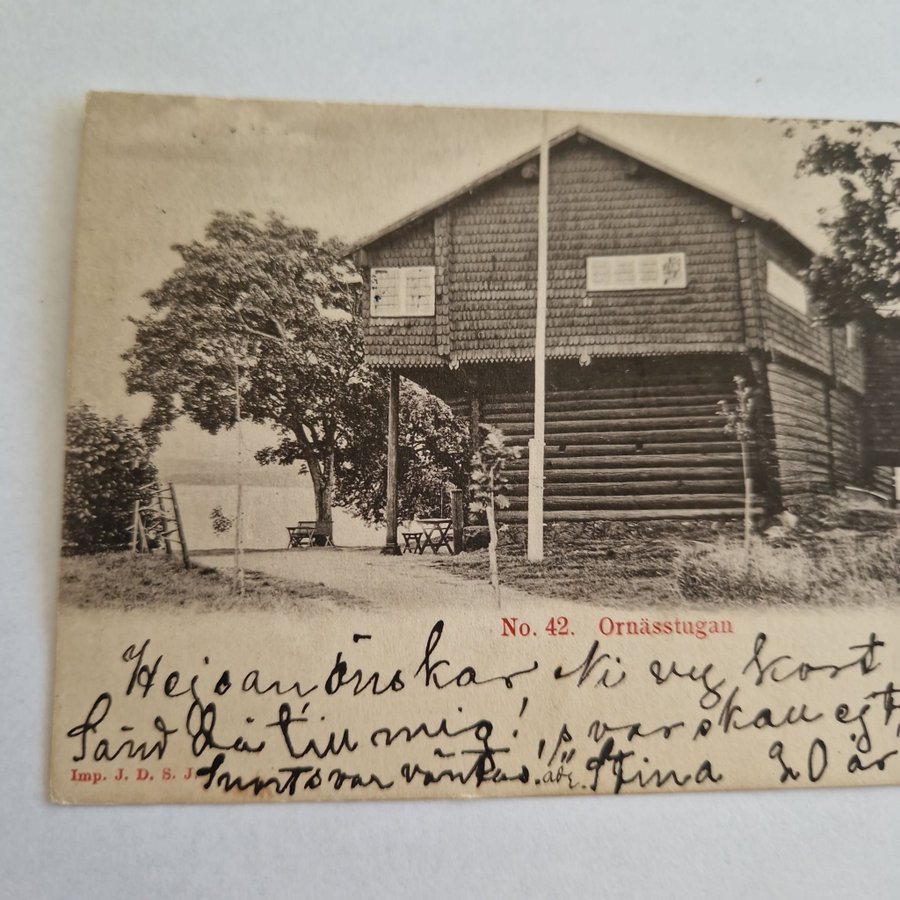 No. 42. Ornässtugan
Hejsan önskar Ni vy kort
Sänd då till mig! svar skall
Imp. J. D. S. J.
Snort svar väntas! Stina 20 år